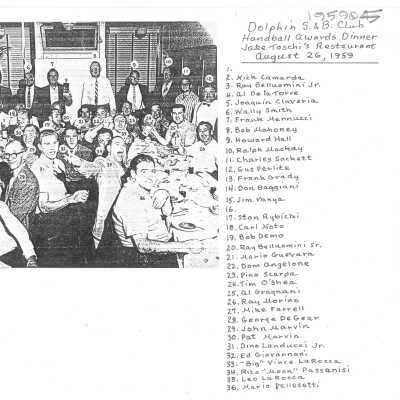 Dolphin S.&B. Club
Handball Awards Dinner
Jake Toschi's Restaurant
August 26, 1959
1.
2. Nick Camarda
3. Ray Belluomini Jr.
4. Al DeLaTorre
5. Joaquin Claveria
6. Wally Smith
7. Frank Mennucci
8. Bob Mahoney
9. Howard Hall
10. Ralph Mackay
11. Charles Sackett
12. Gus Perlite
13. Frank Grady
14. Don Baggiani
15. Jim Vanya
16.
17. Stan Rybicki
18. Carl Noto
19. Bob Demo
20. Ray Belluomini Sr.
21. Mario Guevara
22. Dom Angelone
23. Pino Scarpa
24. Tim O'Shea
25. Al Gragnani
26. Ray Morino
27. Mike Farrell
28. George DeGear
29. John Marvin
30. Pat Marvin
31. Dino Landucci Jr.
32. Ed Giovannani
33. "Big" Vince LaRocca
34. Rico "Moon" Passanisi
35. Leo LaRocca
36. Mario Pellosetti